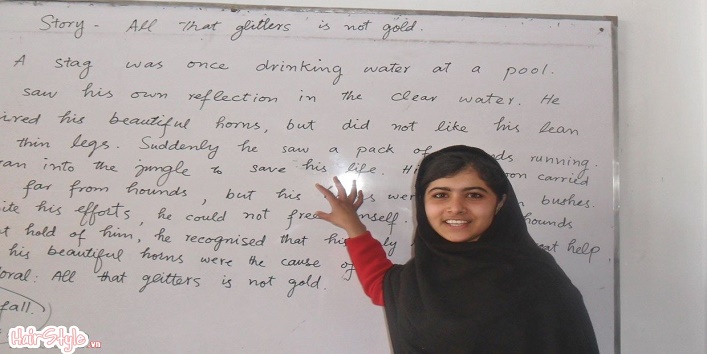 Story - All that glitters is not gold.
A stag was once drinking water at a pool.
saw his own reflection in the clear water. He
his beautiful horns, but did not like his lean
thin legs. Suddenly he saw a pack running.
into the jungle to save his life. carried
far from hounds, but his bushes.
his efforts, he could not free hounds
hold of him, he recognised that his help.
his beautiful horns were the cause of
All that glitters is not gold.
fall.
HairStyle.vn